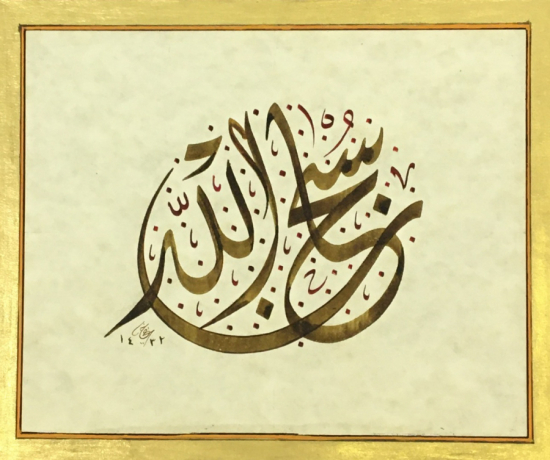 سبحان الله
١٤٢٢